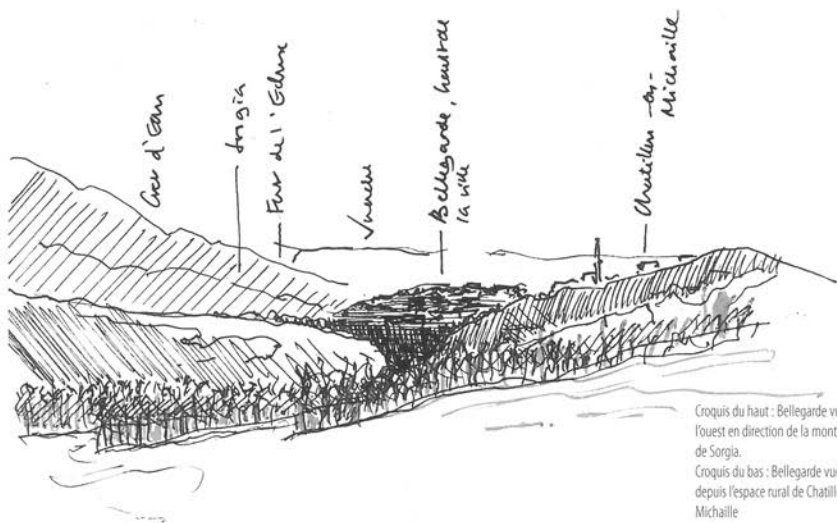 Crêt d'Eau
Sorgia
Fort de l'Ecluse
Vuache
Bellegarde, haut de
la ville
Chatillon-en-
Michaille
Croquis du haut : Bellegarde vu
l'ouest en direction de la mont
de Sorgia.
Croquis du bas : Bellegarde vue
depuis l'espace rural de Chatill
Michaille